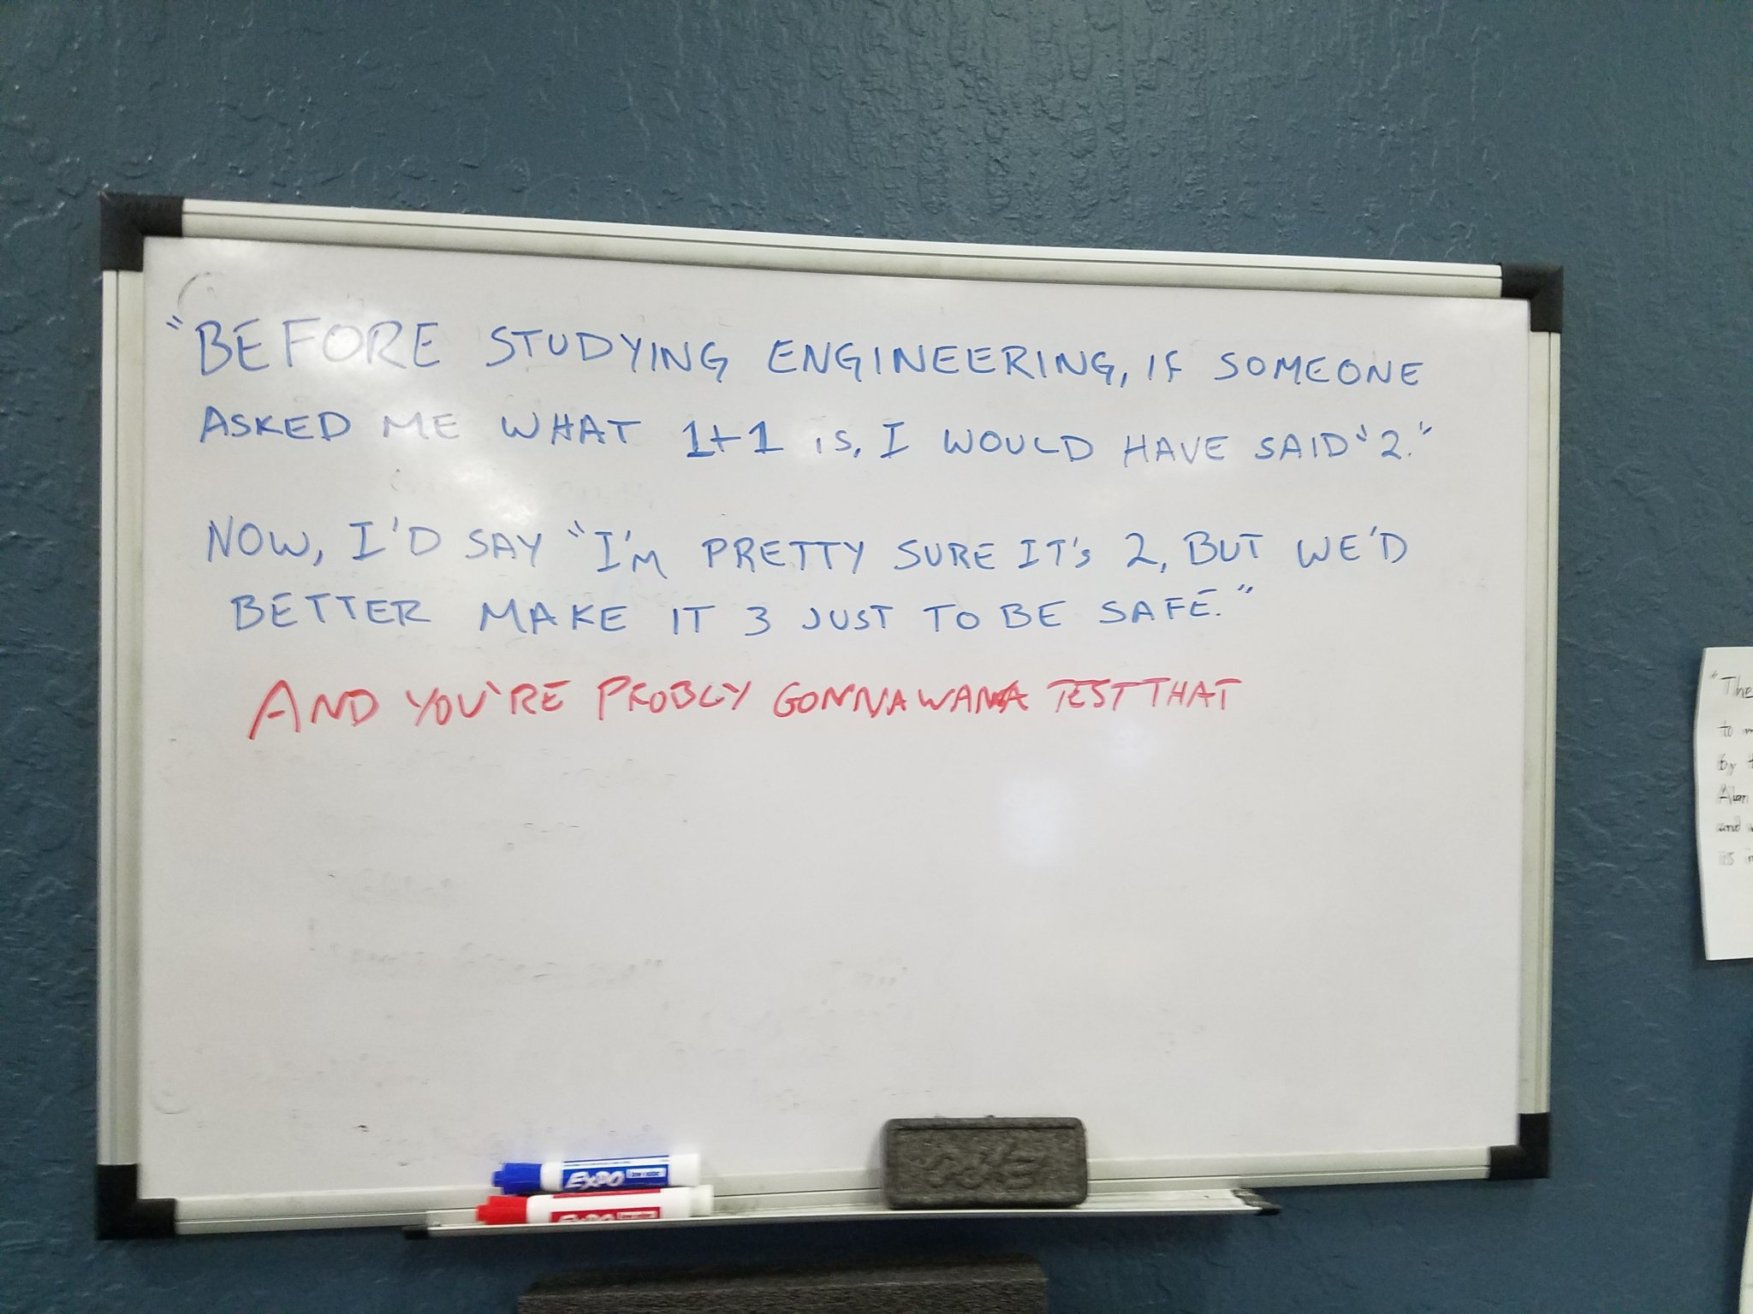 "BEFORE STUDYING ENGINEERING, IF SOMEONE
ASKED ME WHAT 1+1 IS, I WOULD HAVE SAID "2."
NOW, I'D SAY "I'M PRETTY SURE IT'S 2, BUT WE'D
BETTER MAKE IT 3 JUST TO BE SAFE."
AND YOU'RE PROBLY GONNA WANA TEST THAT
EXPO
EXPO
"The
to
by
and